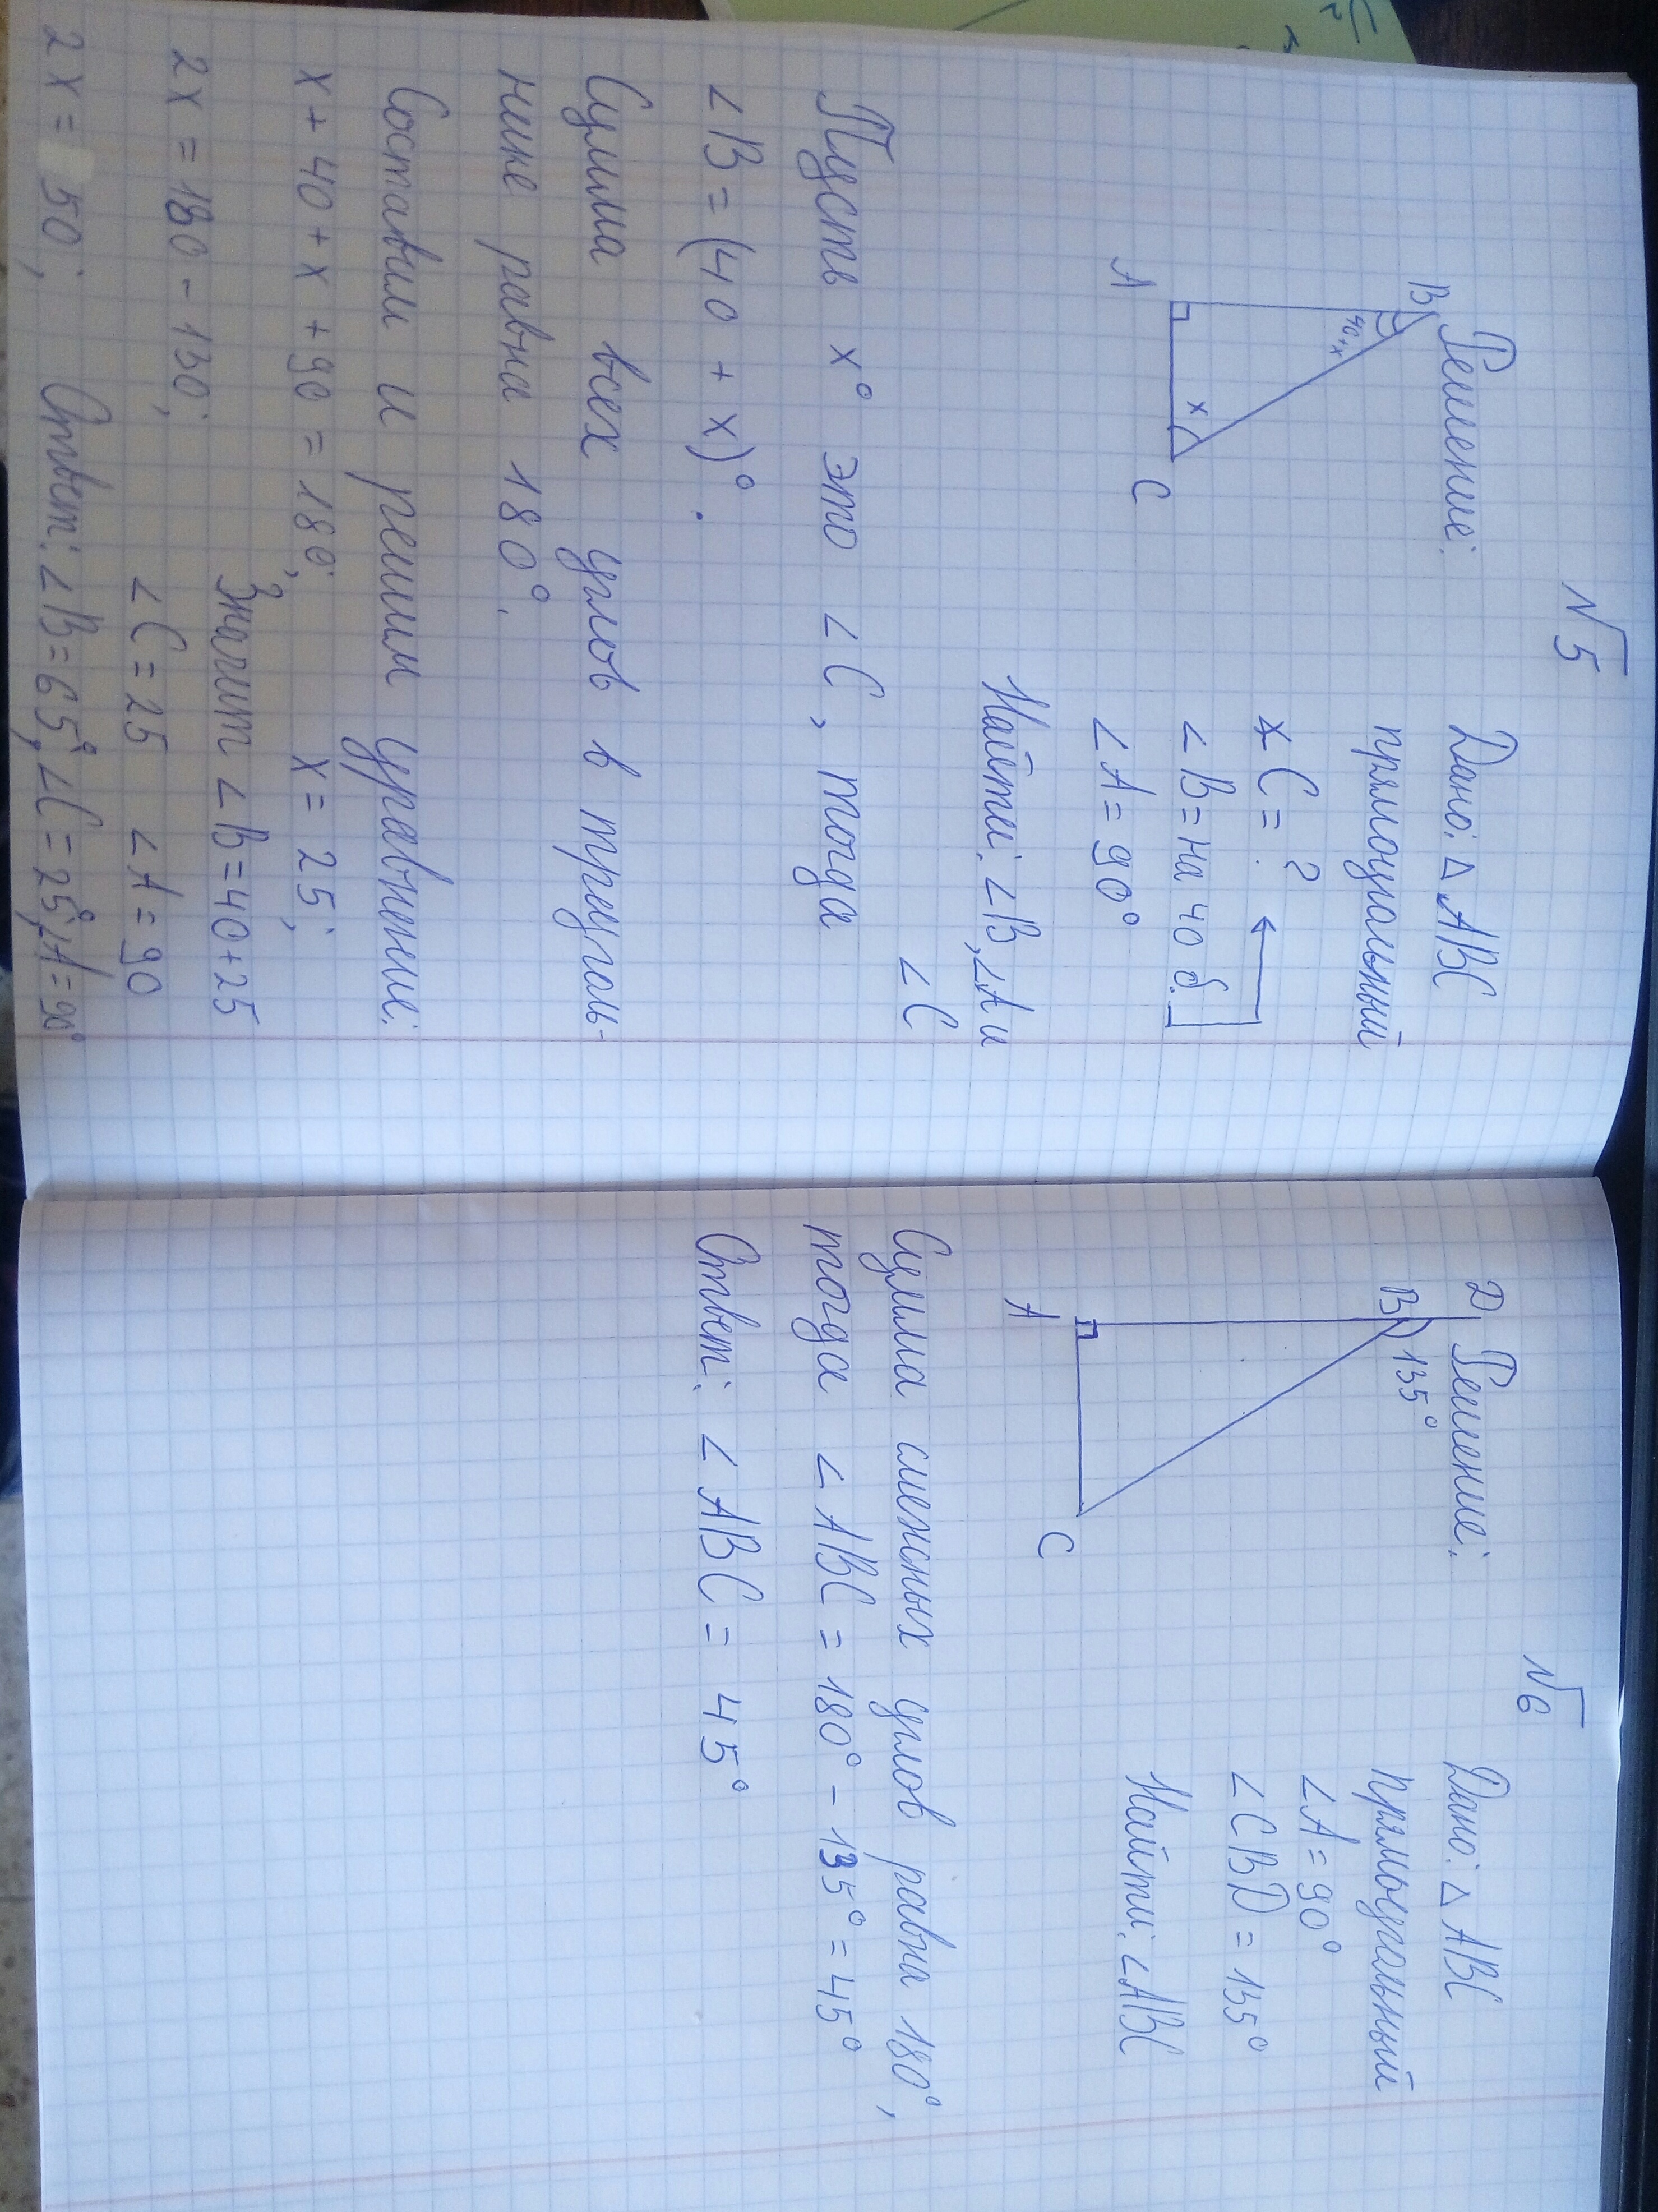 №5
Решение:
Дано: △ABC
прямоуголный
∠C = ?
∠B = на 40 б.
∠A = 90°
Найти: ∠B, ∠A и
∠C
B
40+x
x
A
C
Пусть x° это ∠C, тогда
∠B = (40 + x)°.
Сумма всех углов в треуголь-
нике равна 180°.
Составим и решим уравнение:
x + 40 + x + 90 = 180;
2x = 180 - 130;
2x = 50;
x = 25;
Значит ∠B = 40 + 25
∠C = 25 ∠A = 90
Ответ: ∠B = 65°, ∠C = 25°, ∠A = 90°
№6
Решение:
Дано: △ABC
прямоугольный
∠A = 90°
∠CBD = 135°
Найти: ∠ABC
D
B
135°
A
C
Сумма смежных углов равна 180°,
тогда ∠ABC = 180° - 135° = 45°
Ответ: ∠ABC = 45°